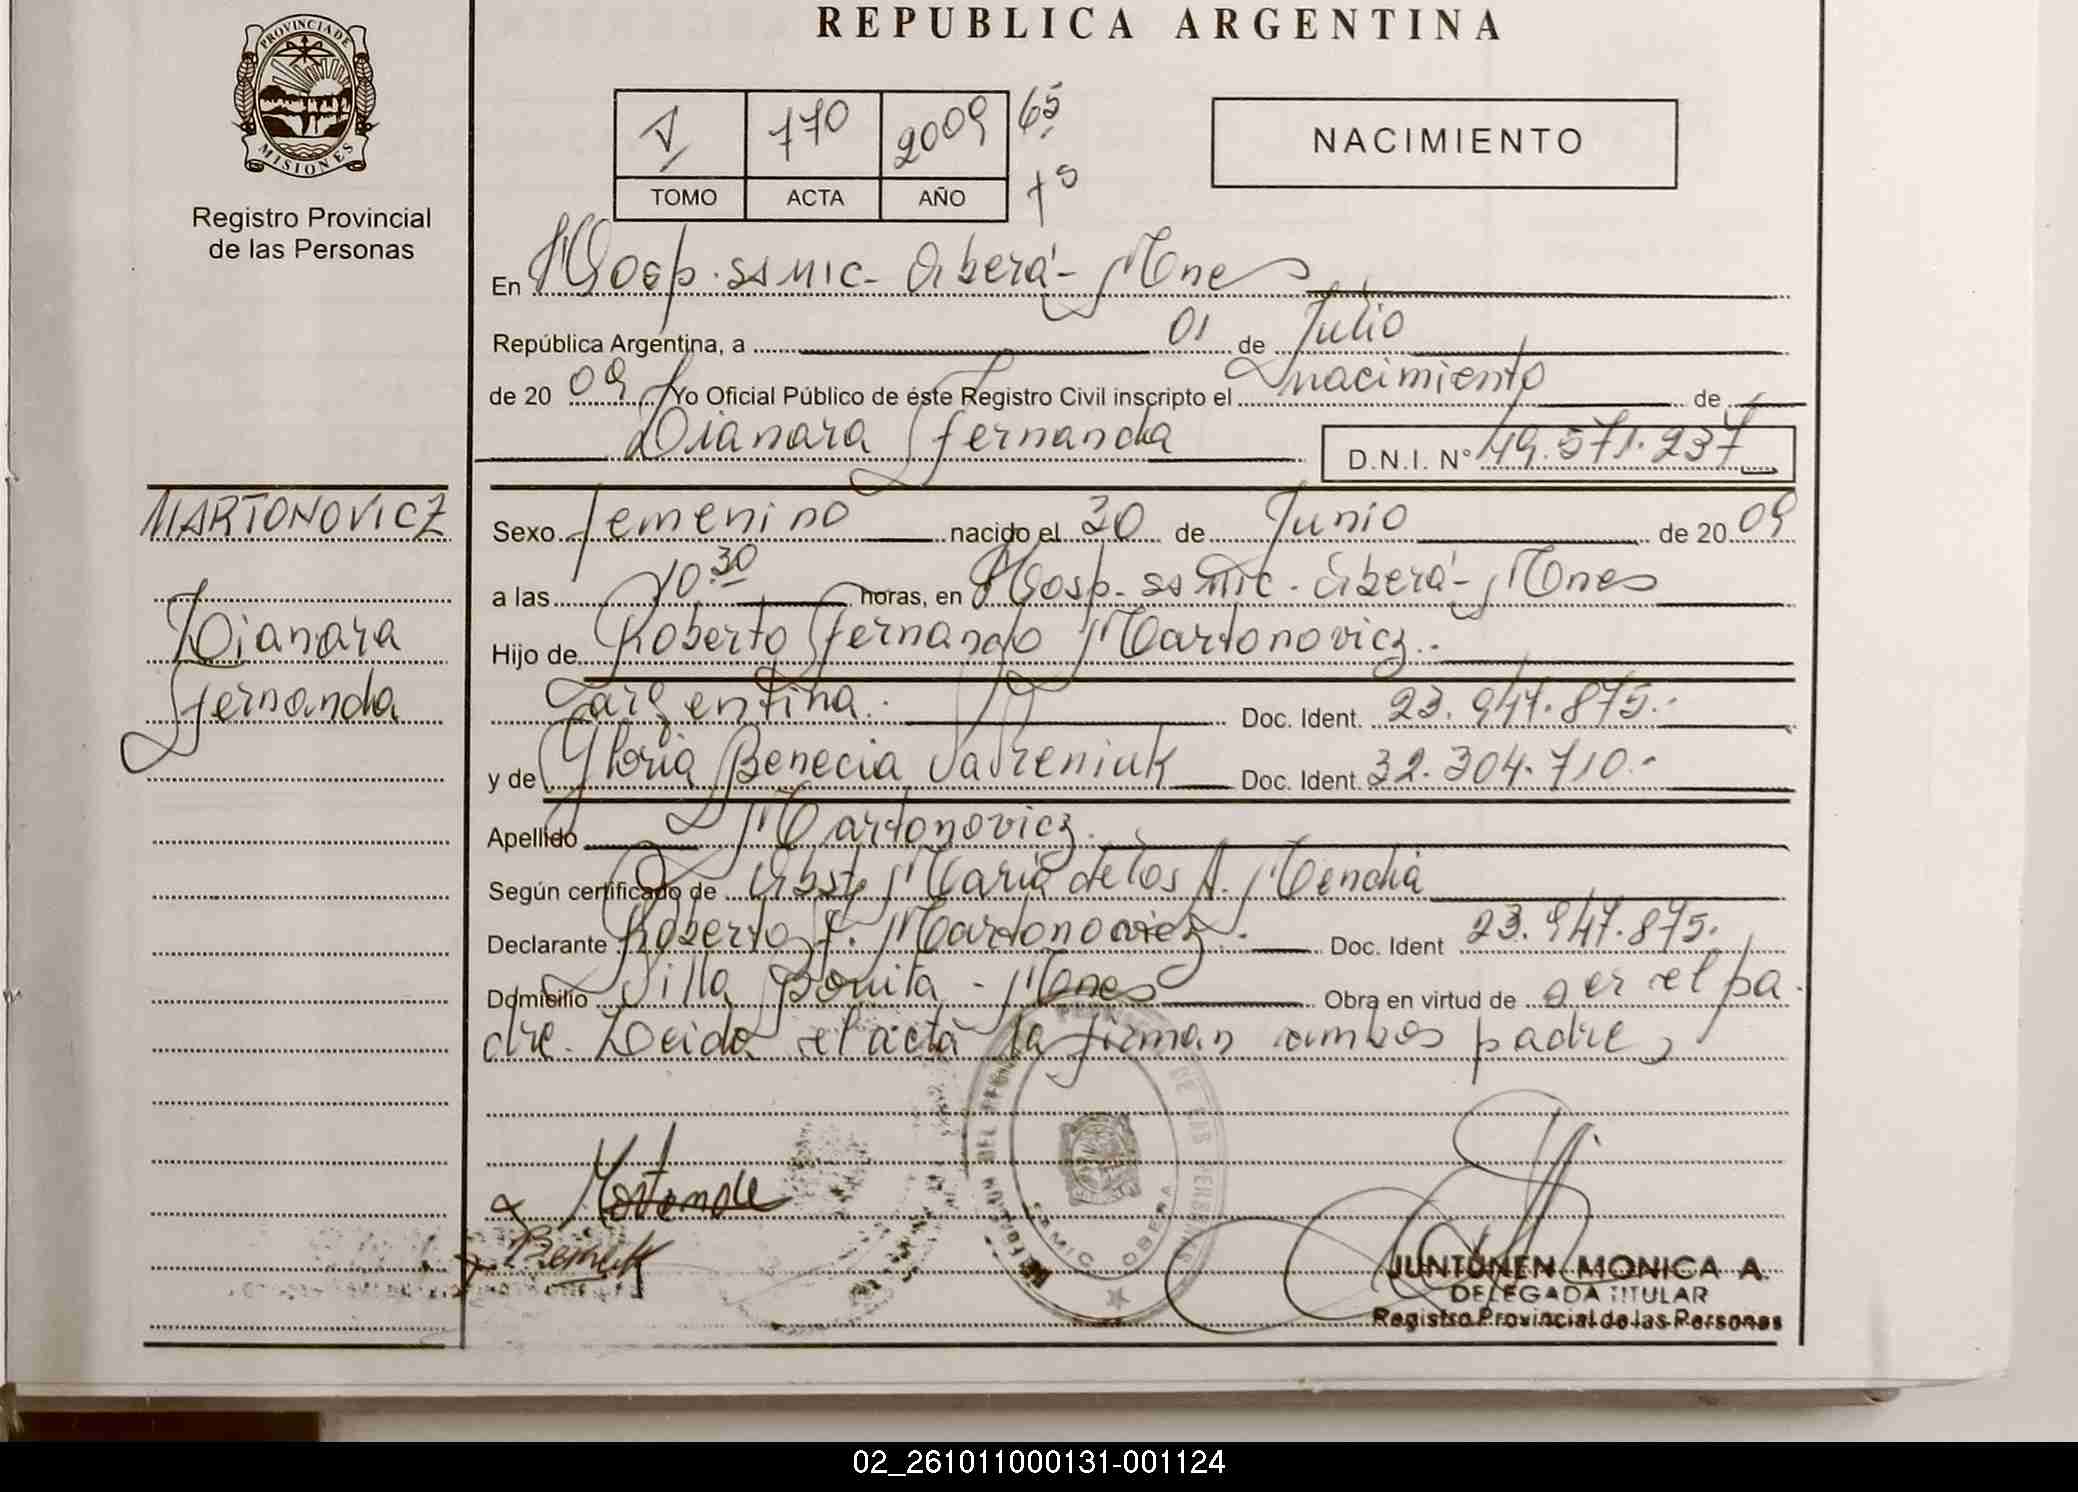 REPUBLICA ARGENTINA
PROVINCIA DE
MISIONES
Registro Provincial
de las Personas
770 2009 65
TOMO ACTA AÑO
NACIMIENTO
En Hosp. ss mic - Oberá - Mnes
República Argentina, a 01 de Julio
de 20 09 Yo Oficial Público de éste Registro Civil inscripto el nacimiento de
Dianara Fernanda D.N.I. Nº 49.571.237
MARTONOVICZ
Dianara
Fernanda
Sexo femenino nacido el 30 de Junio de 20 09
a las 10 30 horas, en Hosp. ss mic - Oberá - Mnes
Hijo de Roberto Fernando Martonovicz.-
argentina.- Doc. Ident. 23.947.875.-
y de Gloria Benecia Doc. Ident. 32.304.710.-
Apellido Martonovicz.
Según certificado de Obst. Maria de los A.
Declarante Roberto F. Martonovicz.- Doc. Ident 23.947.875.
Domicilio Villa Bonita - Mnes Obra en virtud de ser el pa
dre. Leida el acta la firman ambos padres
SAMIC OBERA
JUNTONEN MONICA A.
DELEGADA TITULAR
Registro Provincial de las Personas
02_261011000131-001124